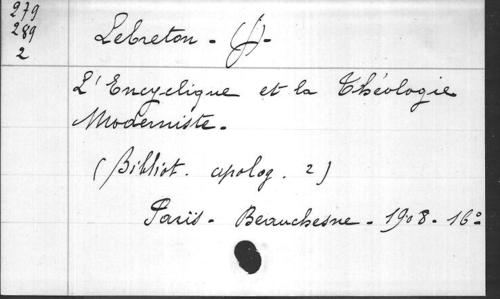 279
289
2
Lebreton - (J) -
L'Encyclique et la Théologie
Moderniste -
(Bibliot. apolog. 2)
Paris - Beauchesne - 1908 - 16°